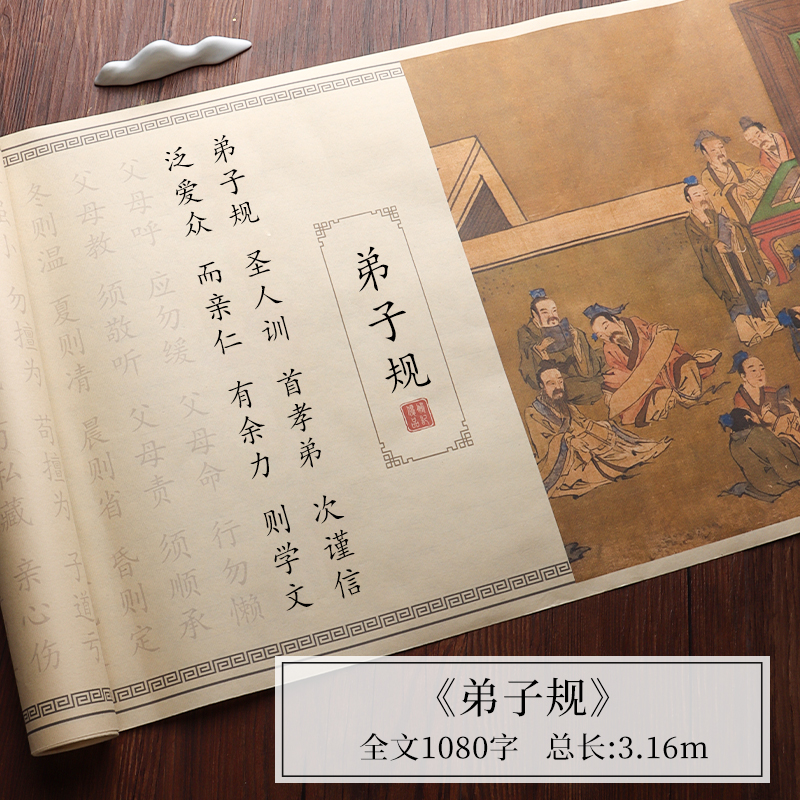 弟子规
弟子规 圣人训 首孝弟 次谨信
泛爱众 而亲仁 有余力 则学文
父母呼 应勿缓 父母命 行勿懒
父母教 须敬听 父母责 须顺承
冬则温 夏则凊 晨则省 昏则定
《弟子规》
全文1080字 总长:3.16m